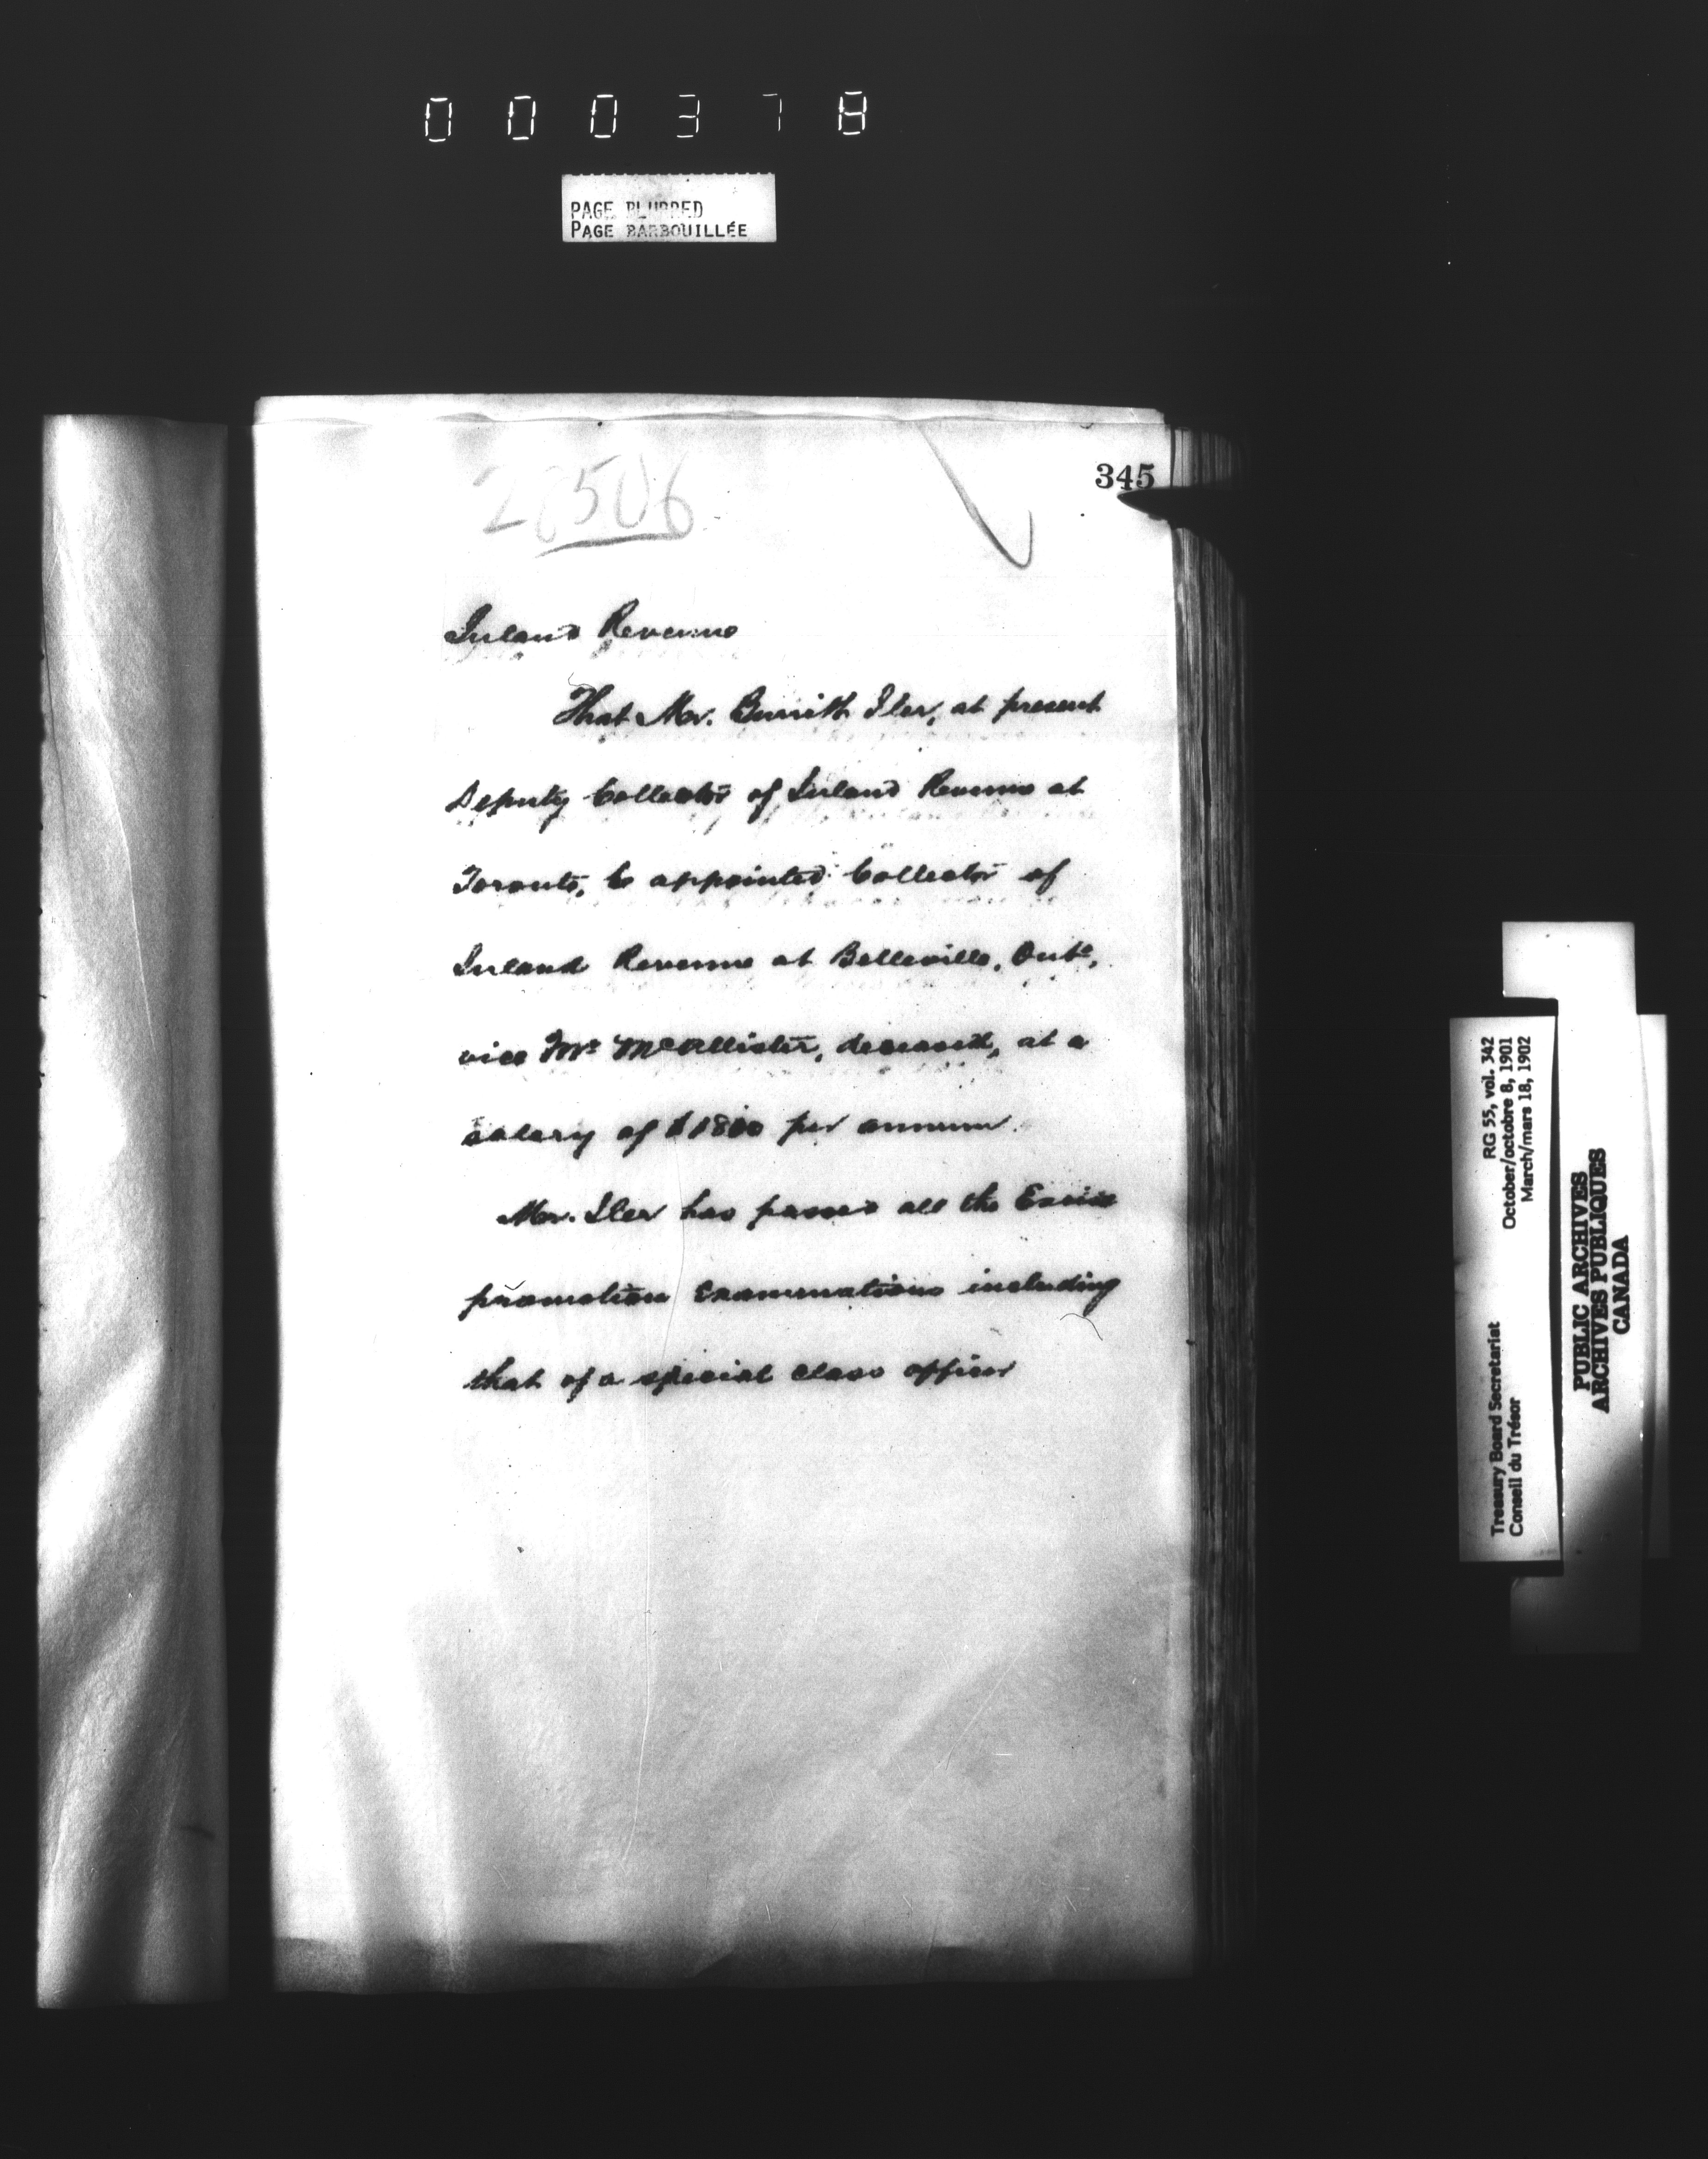 000378
PAGE BLURRED
PAGE BARBOUILLÉE
345
28506
Inland Revenue
That Mr. Burrith Iler, at present
Deputy Collector of Inland Revenue at
Toronto, be appointed Collector of
Inland Revenue at Belleville, Onto,
vice Mr McAllister, deceased, at a
salary of $1800 per annum.
Mr. Iler has passed all the Excise
promotion Examinations including
that of a special class officer
Treasury Board Secretariat RG 55, vol. 342
Conseil du Trésor October/octobre 8, 1901
March/mars 18, 1902
PUBLIC ARCHIVES
ARCHIVES PUBLIQUES
CANADA